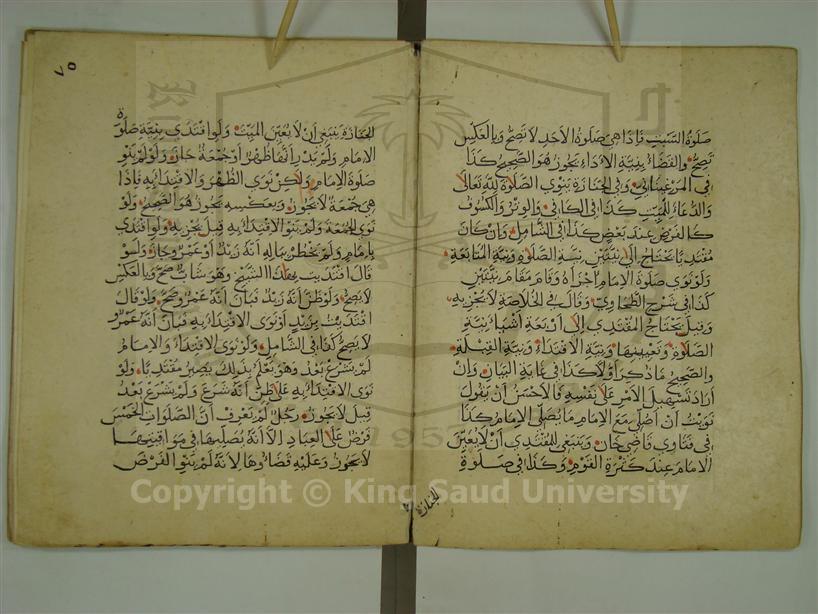 صلوة السبت فاذا هي صلوة الاحد لا تصح وبالعكس
تصح والقضاء بنية الاداء يجوز هو الصحيح كذا
في المرغيناني وفي الجنازة ينوي الصلوة لله تعالى
والدعاء للميت كذا في الكافي والوتر والكسوف
كالفرض عند بعض كذا في الشامل وان كان
مقتديا يحتاج الى نيتين نية الصلوة ونية المتابعة
ولو نوى صلوة الامام اجزاه وقام مقام نيتين
كذا في شرح الطحاوي وقال في الخلاصة لا يجزيه
وقيل يحتاج المقتدي الى اربعة اشياء نية
الصلوة وتعيينها ونية الاقتداء ونية القبلة
والصحيح ما ذكر اولا كذا في غاية البيان وان
اراد تسهيل الامر على نفسه فالاحسن ان يقول
نويت ان اصلي مع الامام ما يصلي الامام كذا
في فتاوي قاضي خان وينبغي للمقتدي ان لا يعين
الامام عند كثرة القوم وكذا في صلوة
الجنازة
٧٥
الجنازة ينبغي ان لا يعين الميت ولو اقتدى بنية صلوة
الامام ولم يدر انها ظهر او جمعة جاز ولو لم ينو
صلوة الامام ولكن نوى الظهر والاقتداء به فاذا
هي جمعة لا يجوز وبعكسه يجوز هو الصحيح ولو
نوى الجمعة ولم ينو الاقتداء به قيل يجزيه ولو اقتدى
بامام ولم يخطر بباله انه زيد او عمرو جاز ولو
قال اقتديت بهذا الشيخ وهو شاب صح وبالعكس
لا يصح ولو ظن انه زيد فبان انه عمرو صح ولو قال
اقتديت بزيد او نوى الاقتداء به فبان انه عمرو
لا يصح كذا في الشامل ولو نوى الاقتداء والامام
لم يشرع بعد وهو يعلم بذلك يصير مقتديا ولو
نوى الاقتداء به على ظن انه شرع ولم يشرع بعد
قيل لا يجوز رجل لم يعرف ان الصلوات الخمس
فرض على العباد الا انه يصليها في مواقيتها
لا يجوز وعليه قضاؤها لانه لم ينو الفرض
Copyright © King Saud University
1957